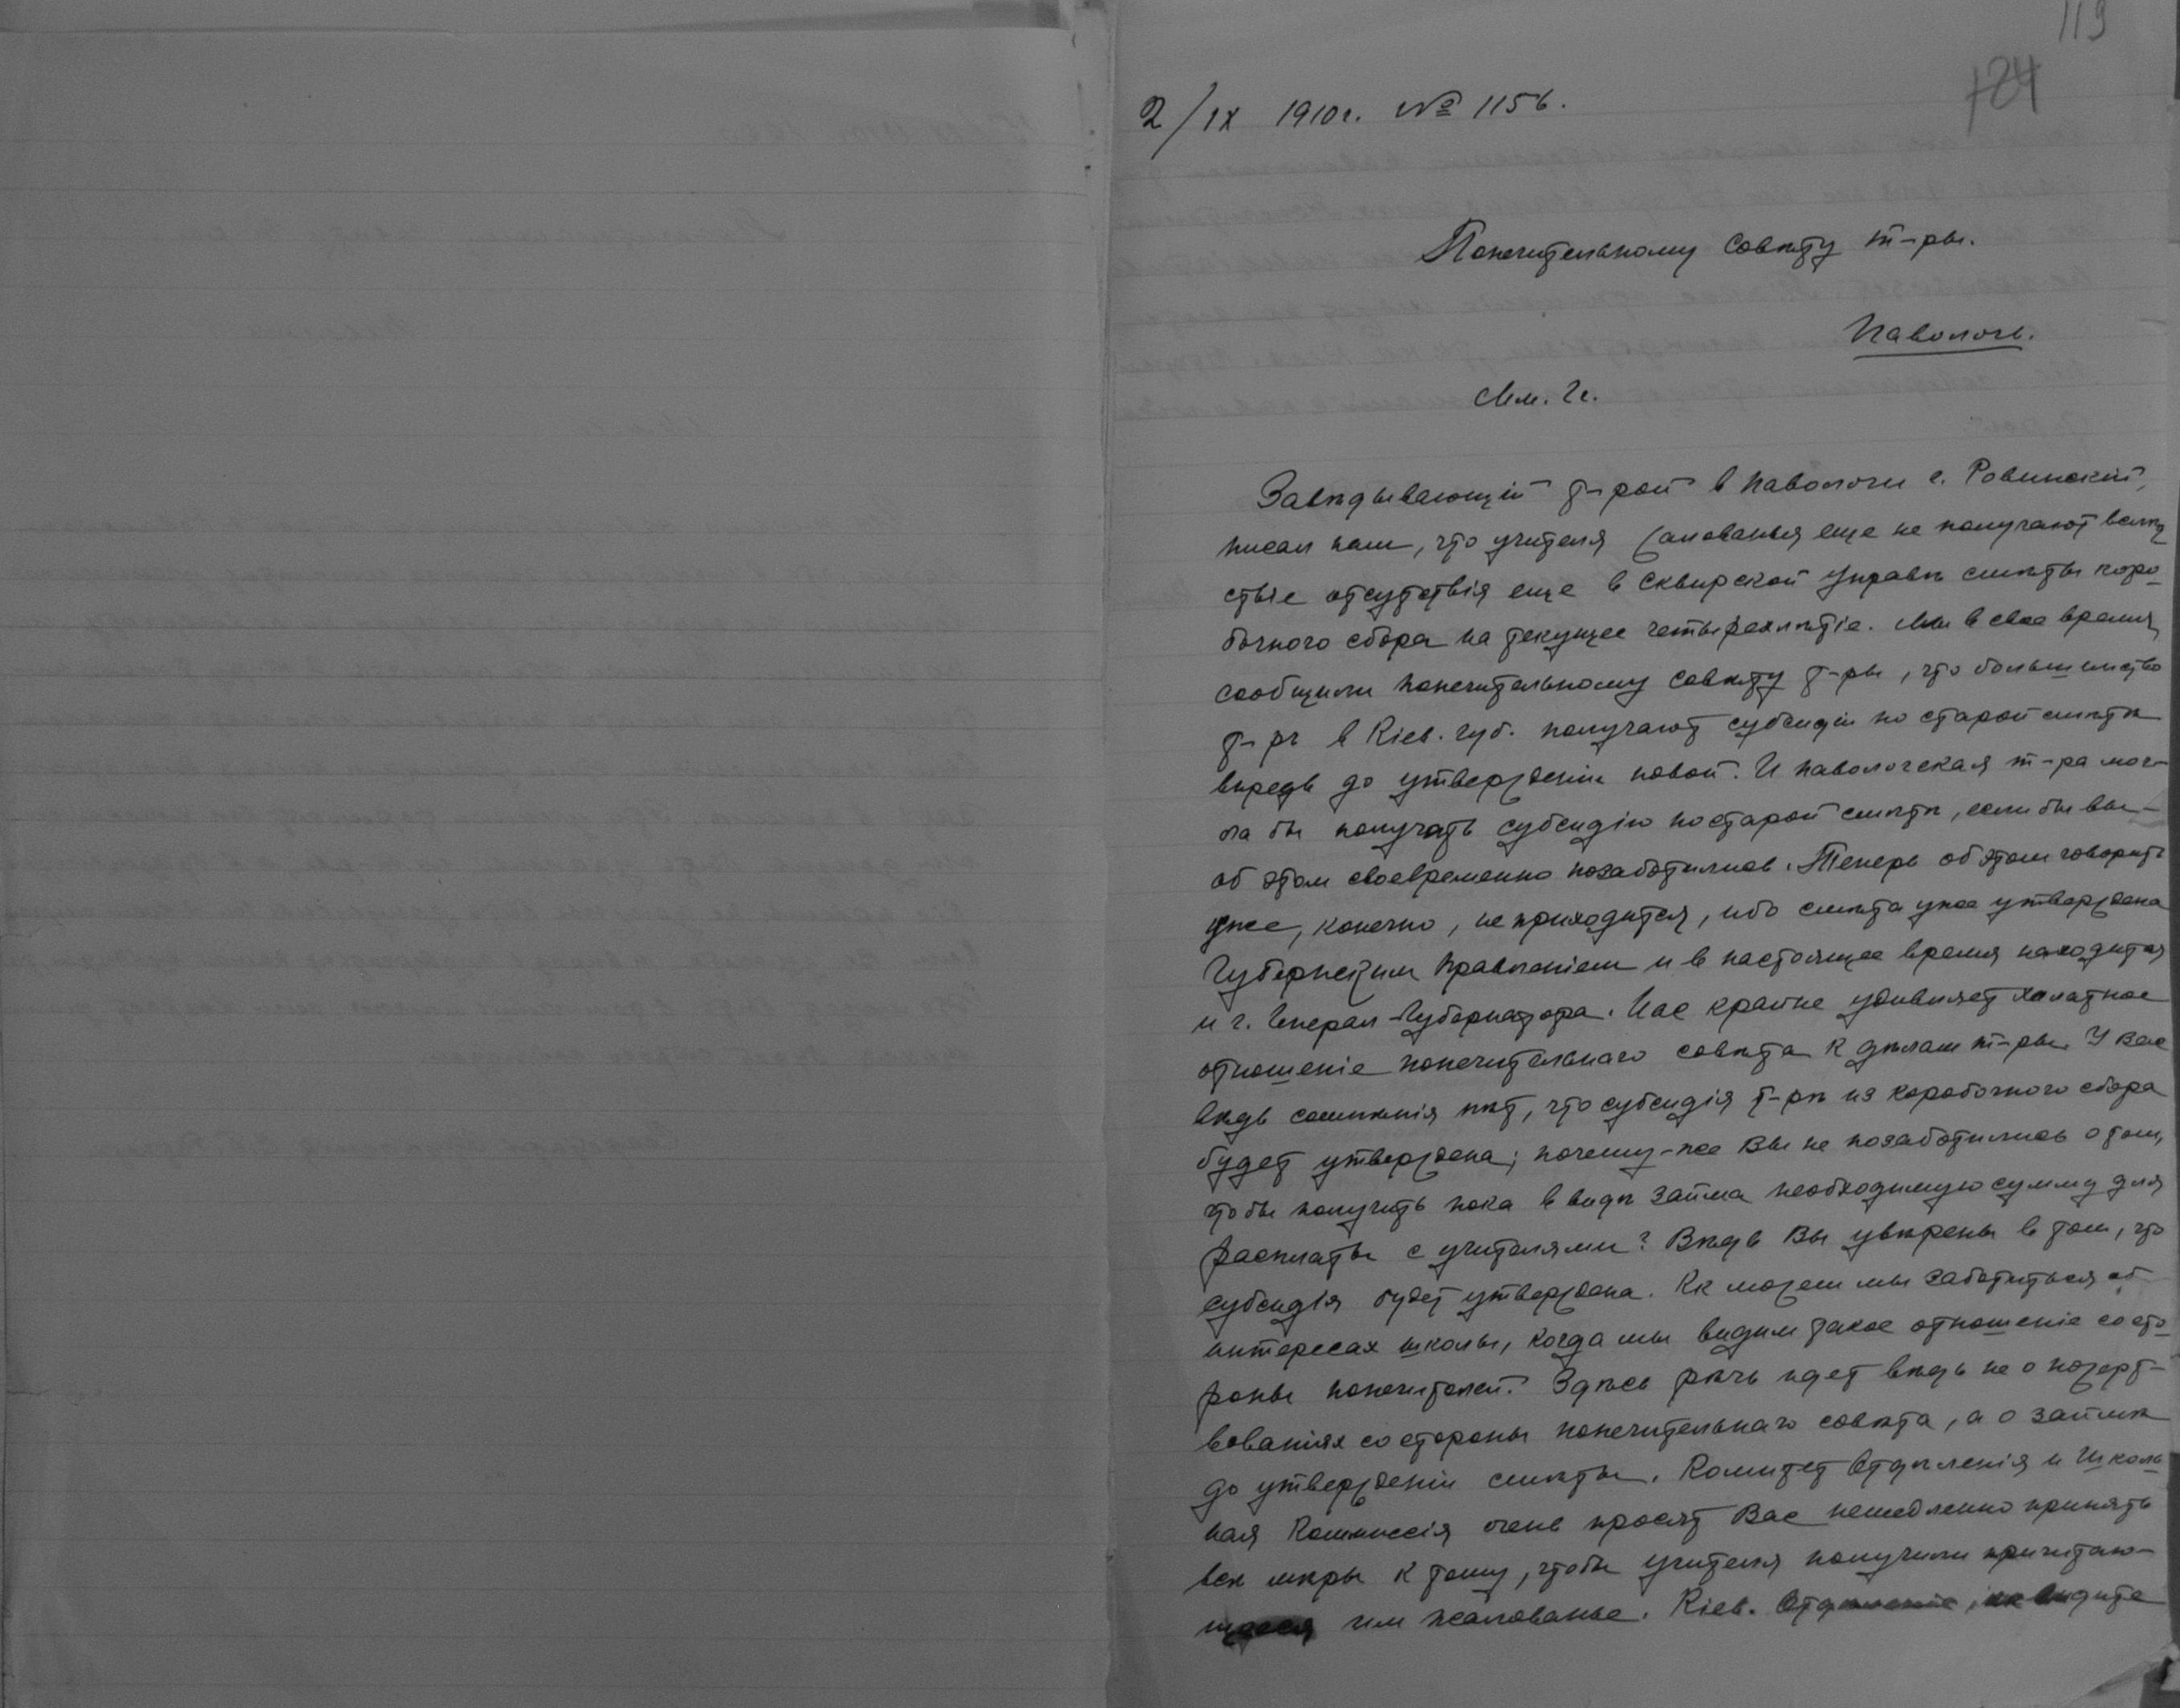 119
124
2/IX 1910 г. № 1156.
Попечительному Совѣту т-ры.
Паволочь.
Мм. Гг.
Завѣдывающій т-рой в Паволочи г. Ровинскій,
писал нам, что учителя жалованья еще не получают вслѣд
ствіе отсутствія еще в Сквирской Управѣ смѣты коро
бочного сбора на текущее четырехлѣтіе. Мы в свое время
сообщили попечительному совѣту т-ры, что большинство
т-р в Кіев. губ. получают субсидіи по старой смѣтѣ
впредь до утвержденіи новой. И паволочская т-ра мог-
ла бы получать субсидію по старой смѣтѣ, если бы вы
об этом своевременно позаботились. Теперь об этом говорить
уже, конечно, не приходится, ибо смѣта уже утверждена
Губернским Правленіем и в настоящее время находится
и г. Генерал-Губернатора. Нас крайне удивляет халатное
отношеніе попечительнаго совѣта к дѣлам т-ры. У Вас
вѣдь сомнѣнія нѣт, что субсидія т-рѣ из коробочного сбора
будет утверждена; почему-же Вы не позаботились о том,
чтобы получить пока в видѣ займа необходимую сумму для
расплаты с учителями? Вѣдь Вы увѣрены в том, что
субсидія будет утверждена. Кк можем мы заботиться об
интересах школы, когда мы видим такое отношеніе со сто
роны попечителей? Здѣсь рѣчь идет вѣдь не о пожерт-
вованіях со стороны попечительнаго совѣта, а о займѣ
до утвержденіи смѣты. Комитет Отдѣленія и Школь
ная Коммиссія очень просят Вас немедленно принять
всѣ мѣры к тому, чтобы учителя получили причитаю-
щееся им жалованье. Кіев. Отдѣленіе,